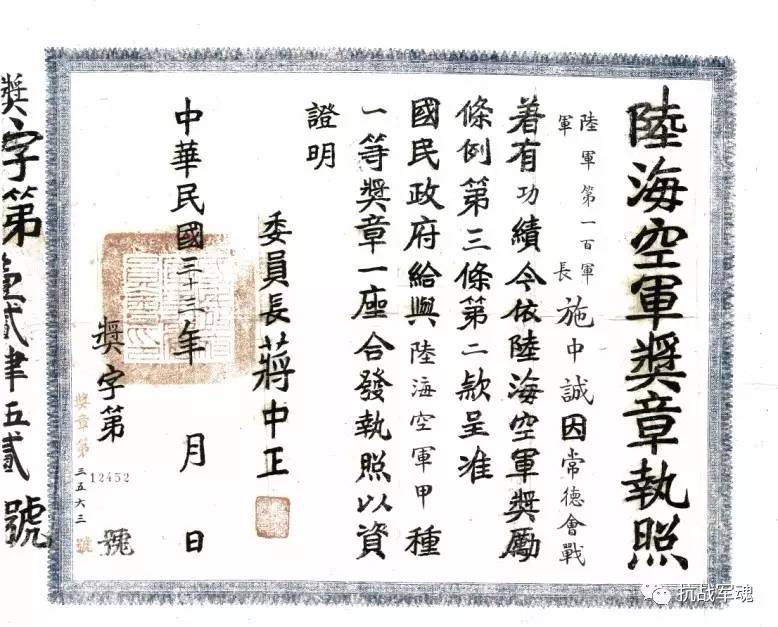 陸海空軍獎章執照
陸軍第一百軍
軍長施中誠因常德會戰
著有功績今依陸海空軍獎勵
條例第三條第二款呈准
國民政府給與陸海空軍甲種
一等獎章一座合發執照以資
證明
委員長蔣中正
中華民國三十三年 月 日
獎字第 12452 號
獎章第三五六三號
獎字第壹貳肆五貳號
抗战军魂